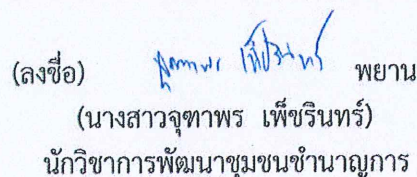 (ลงชื่อ) จุฑาพร เพ็ชรินทร์ พยาน
(นางสาวจุฑาพร เพ็ชรินทร์)
นักวิชาการพัฒนาชุมชนชำนาญการ